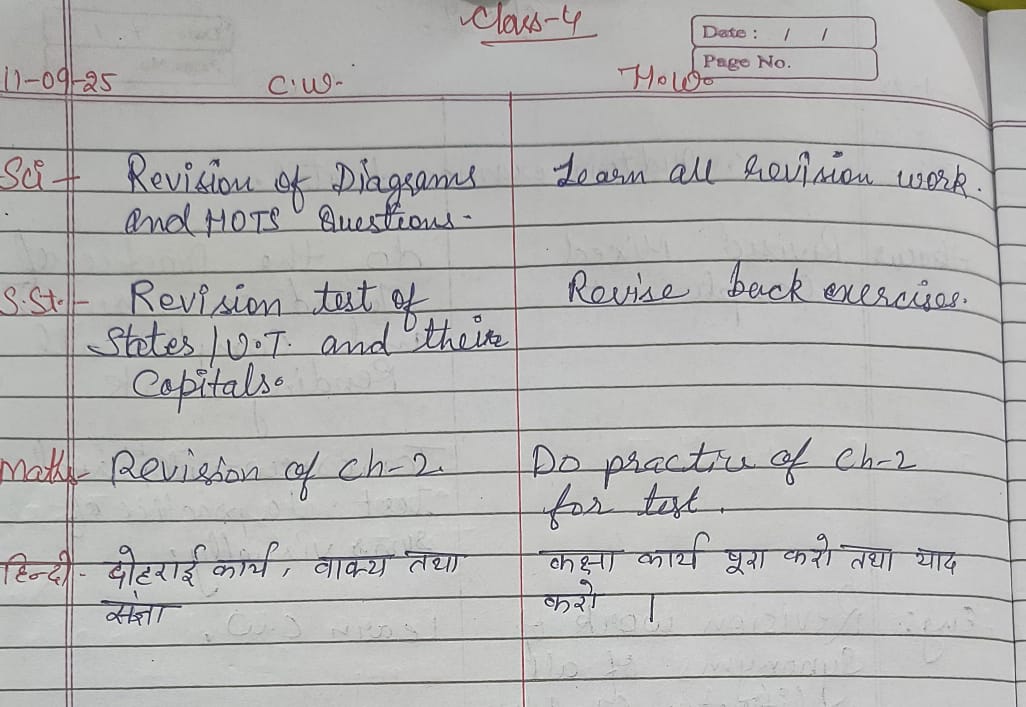 Class-4
Date: / /
Page No.
11-09-25 C.W. H.W.
Sci - Revision of Diagrams Learn all Revision work.
and HOTS Questions.
S.St. - Revision test of Revise back exercises.
States / U.T. and their
Capitals.
Maths - Revision of Ch-2. Do practice of Ch-2
for test.
हिन्दी - दोहराई कार्य, वाक्य तथा कक्षा कार्य पूरा करो तथा याद
संज्ञा करो ।